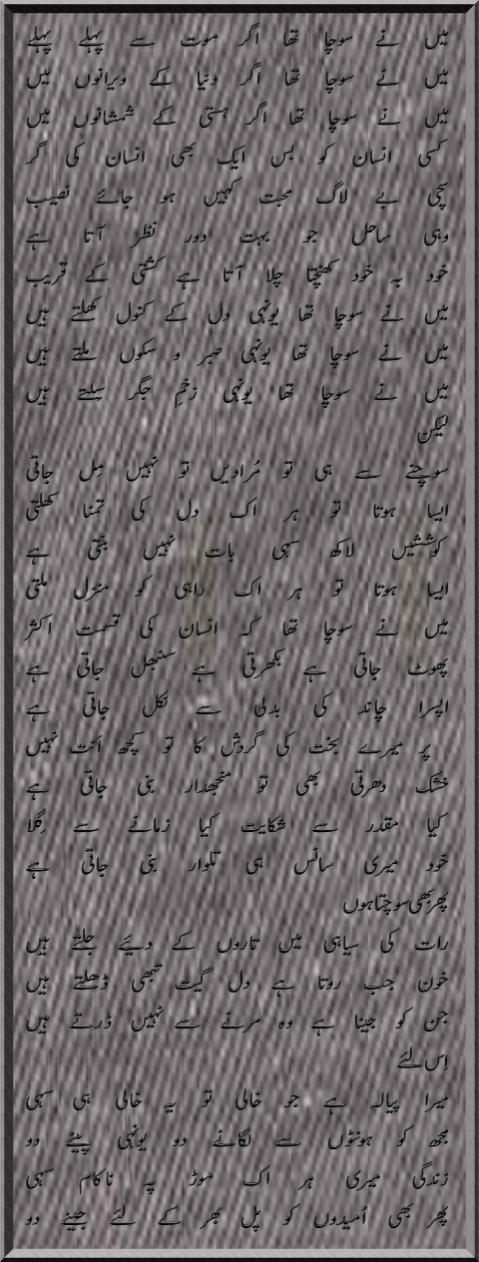 میں نے سوچا تھا اگر موت سے پہلے پہلے
میں نے سوچا تھا اگر دنیا کے ویرانوں میں
میں نے سوچا تھا اگر ہستی کے شمشانوں میں
کسی انسان کو بس ایک بھی انسان کی گر
سچی بے لاگ محبت کہیں ہو جائے نصیب
وہی ساحل جو بہت دور نظر آتا ہے
خود بہ خود کھنچتا چلا آتا ہے کشتی کے قریب
میں نے سوچا تھا یونہی دل کے کنول کھلتے ہیں
میں نے سوچا تھا یونہی صبر و سکوں ملتے ہیں
میں نے سوچا تھا یونہی زخمِ جگر سلتے ہیں
لیکن
سوچنے سے ہی تو مُرادیں تو نہیں مِل جاتی
ایسا ہوتا تو ہر اک دل کی تمنا کھلتی
کوششیں لاکھ سہی بات نہیں بنتی ہے
ایسا ہوتا تو ہر اک راہی کو منزل ملتی
میں نے سوچا تھا کہ انسان کی قسمت اکثر
پھوٹ جاتی ہے بکھرتی ہے سنبھل جاتی ہے
اپسرا چاند کی بدلی سے نکل جاتی ہے
پر میرے بخت کی گردش کا تو کچھ انت نہیں
خشک دھرتی بھی تو منجھدار بنی جاتی ہے
کیا مقدر سے شکایت کیا زمانے سے گِلا
خود میری سانس ہی تلوار بنی جاتی ہے
پھر بھی سوچتا ہوں
رات کی سیاہی میں تاروں کے دیئے جلتے ہیں
خون جب روتا ہے دل گیت تبھی ڈھلتے ہیں
جن کو جینا ہے وہ مرنے سے نہیں ڈرتے ہیں
اِس لئے
میرا پیالہ ہے جو خالی تو یہ خالی ہی سہی
مجھ کو ہونٹوں سے لگانے دو یونہی پینے دو
زندگی میری ہر اک موڑ پہ ناکام سہی
پھر بھی اُمیدوں کو پل بھر کے لئے جینے دو